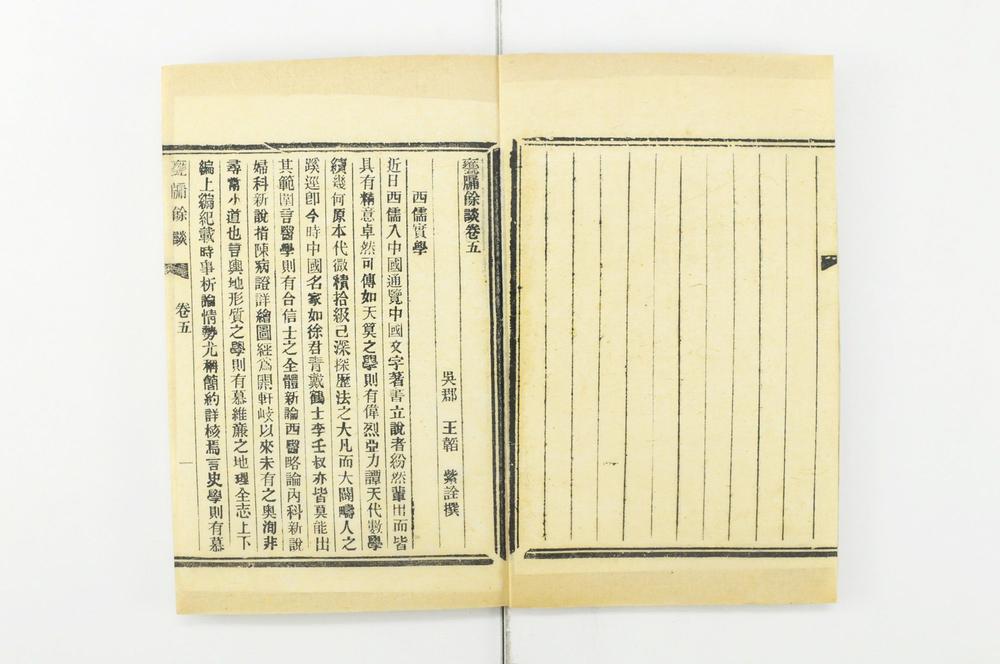 甕牖餘談卷五
吳郡 王韜 紫詮撰
西儒實學
近日西儒入中國通覽中國文字著書立說者紛然輩出而皆
具有精意卓然可傳如天算之學則有偉烈亞力譚天代數學
續幾何原本代微積拾級已深探歷法之大凡而大闢疇人之
蹊逕卽今時中國名家如徐君靑戴鶴士李壬叔亦皆莫能出
其範圍言醫學則有合信士之全體新論西醫略論內科新說
婦科新說指陳病證詳繪圖經爲開軒岐以來未有之奧洵非
尋常小道也言輿地形質之學則有慕維廉之地理全志上下
編上編紀載時事析論情勢尤稱簡約詳核焉言史學則有慕
甕牖餘談
卷五
一